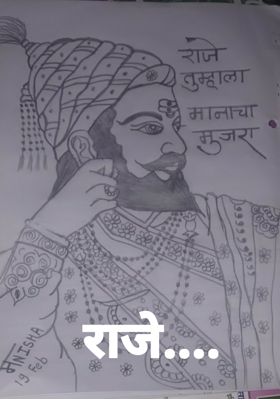 राजे
तुम्हाला
मानाचा
मुजरा
मNISHA
19 Feb
राजे....